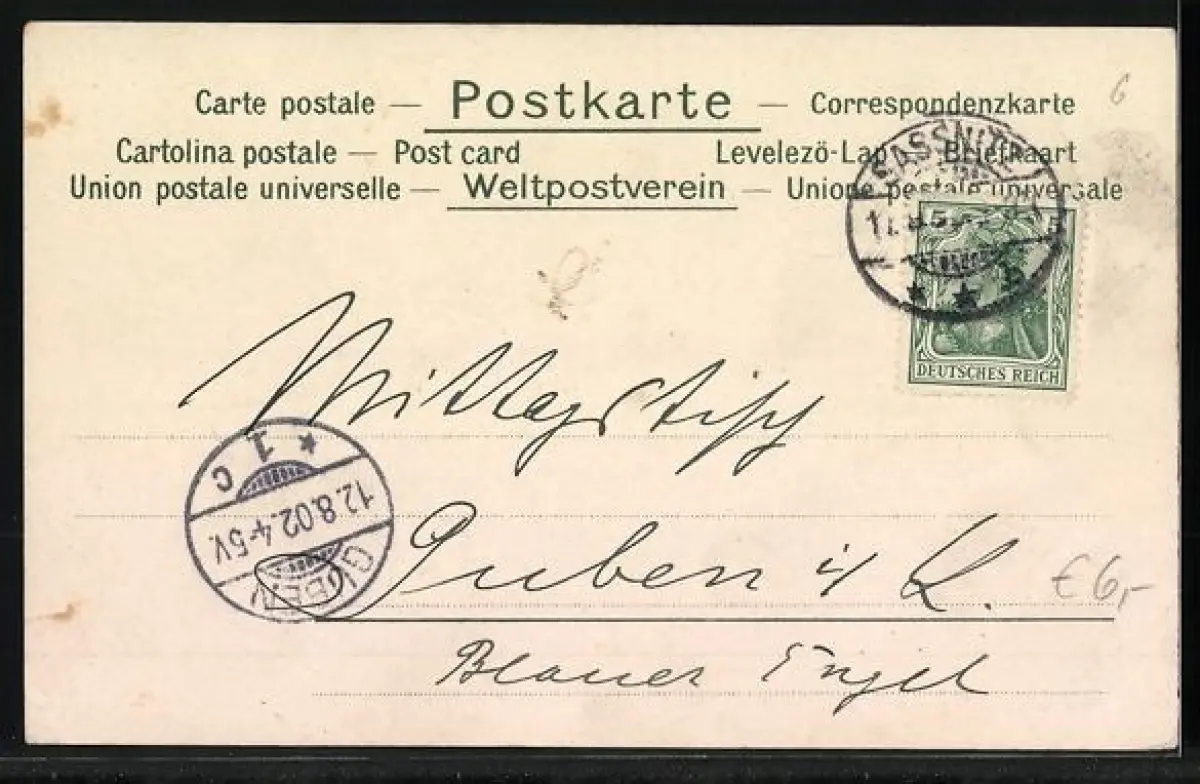 Carte postale — Postkarte — Correspondenzkarte
Cartolina postale — Post card Levelezö-Lap — Briefkaart
Union postale universelle — Weltpostverein — Unione postale universale
6
SASSNITZ
5 5
b
DEUTSCHES REICH
Mittagstisch
* 1 c
12.8.02.4-5V.
GUBEN
Guben i/ L.
€ 6,-
Blauer Engel